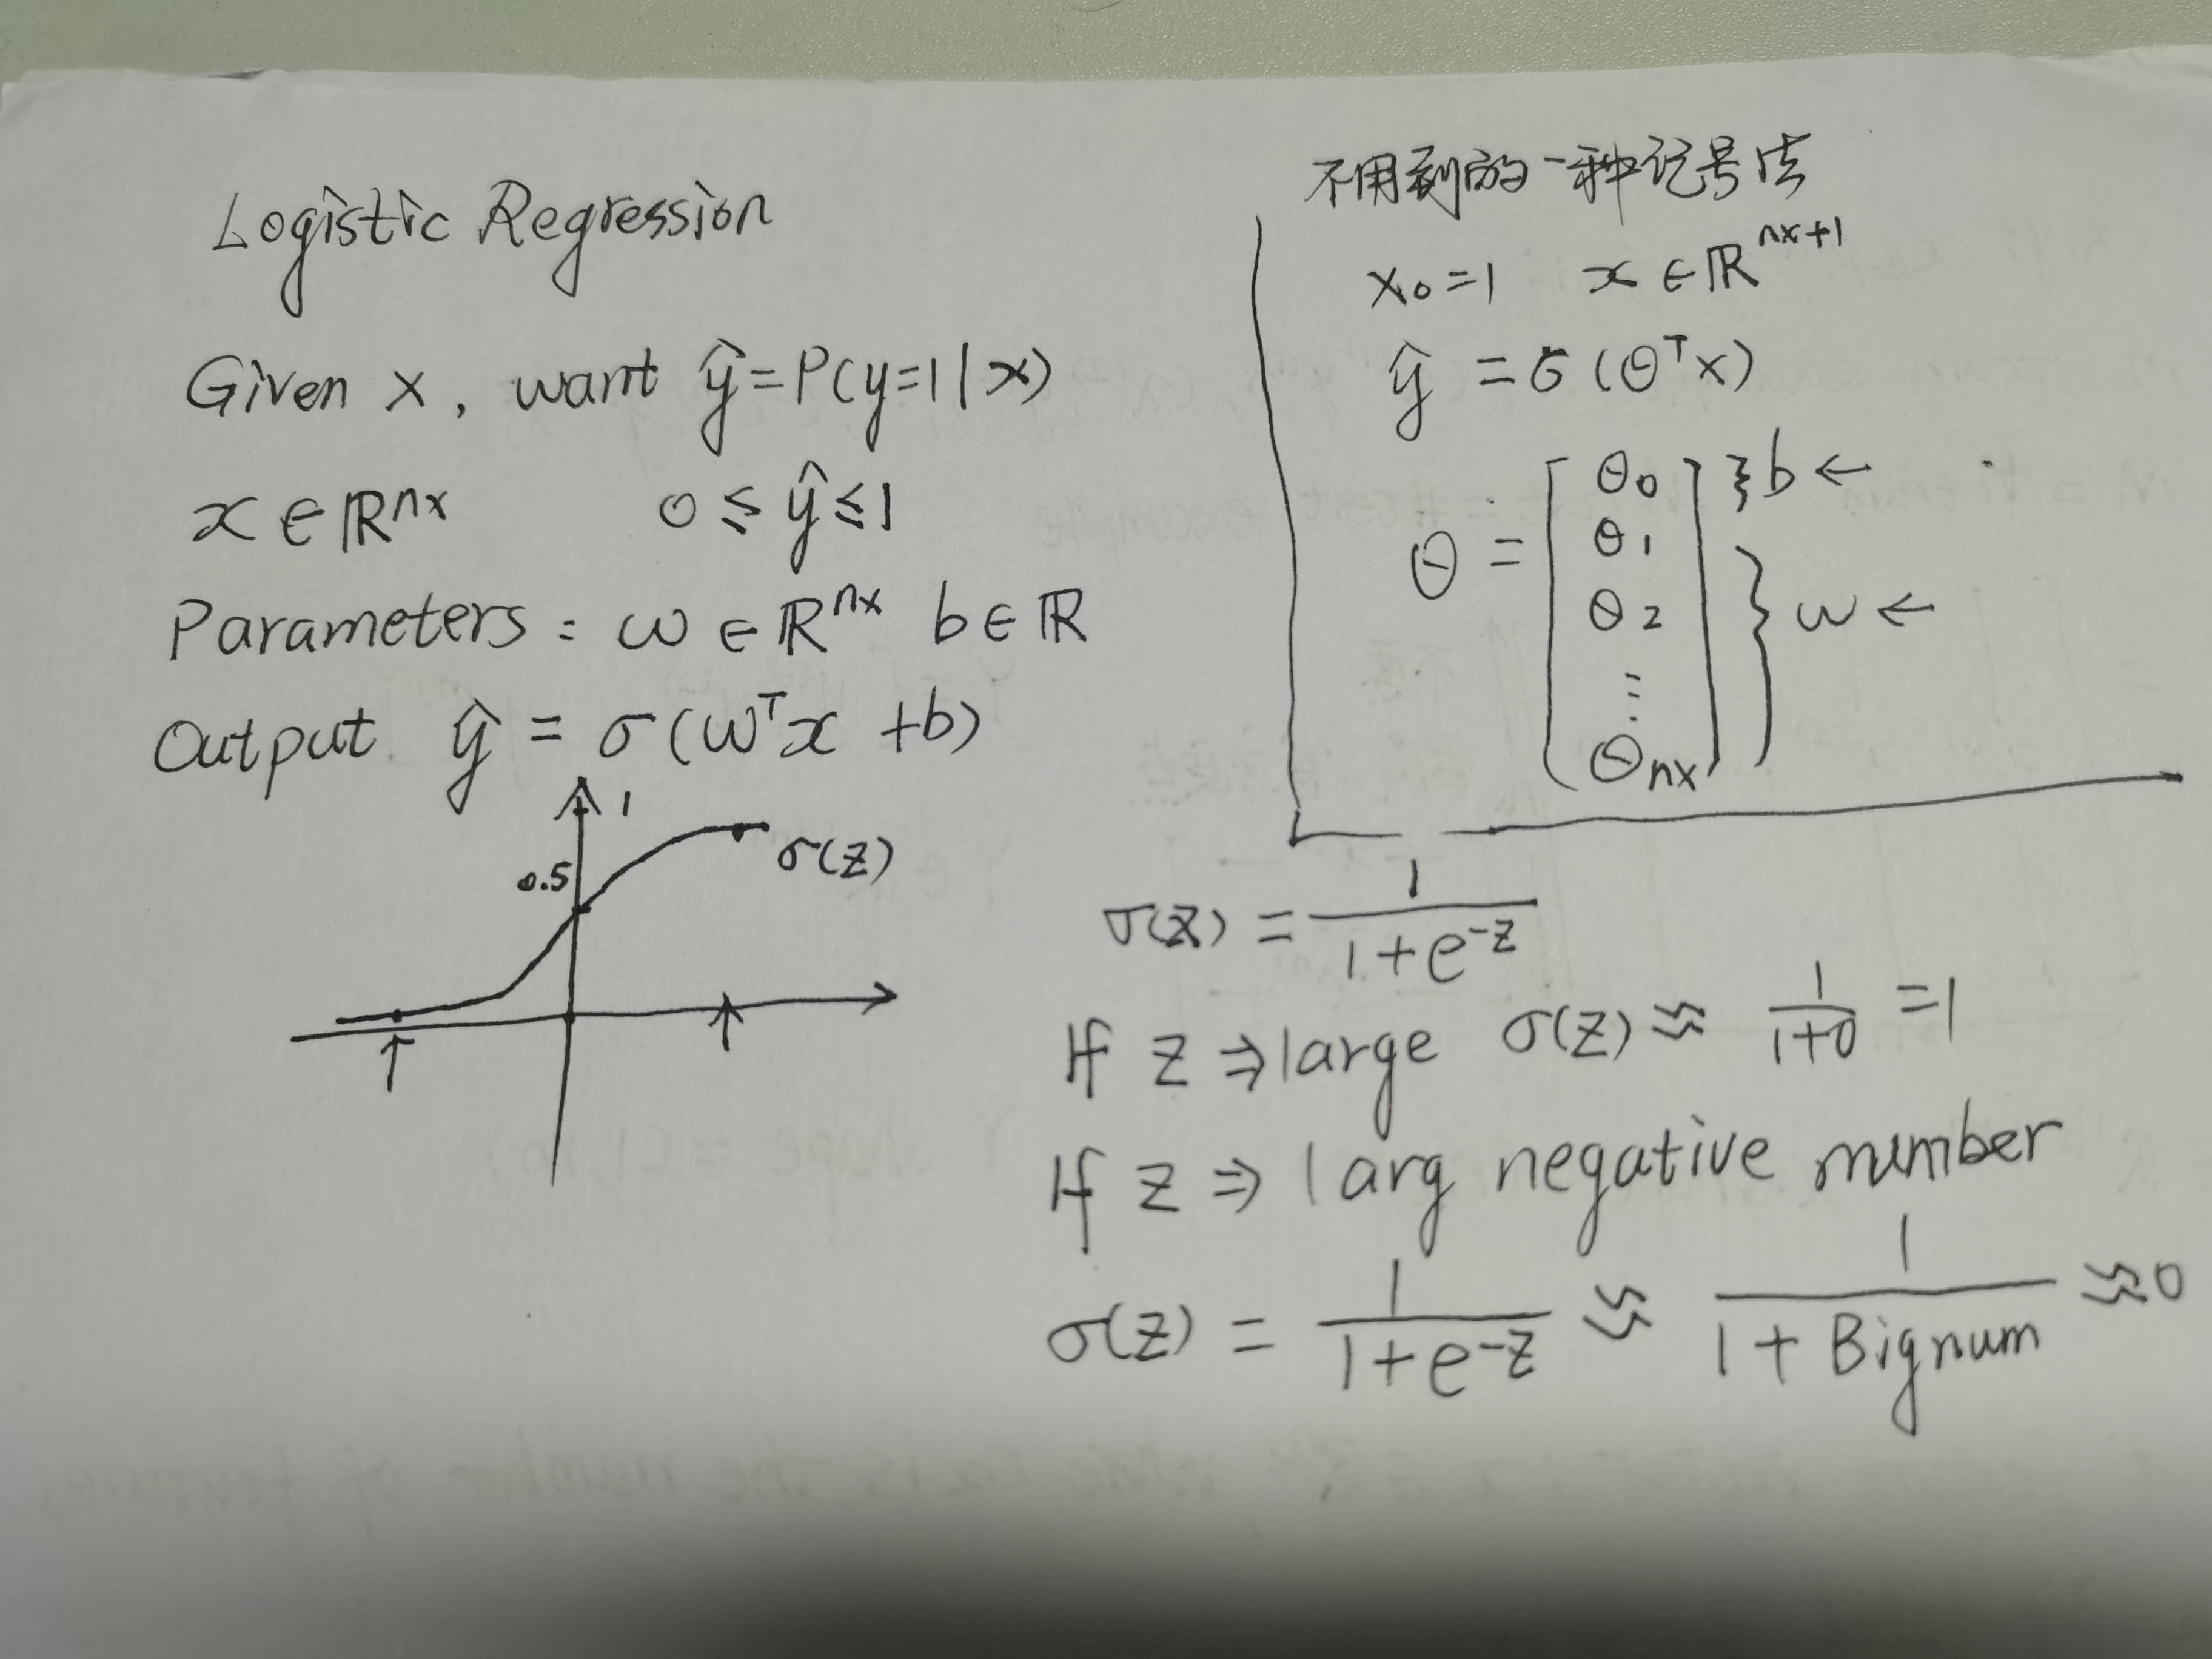 Logistic Regression
Given x, want ŷ=P(y=1|x)
x∈ℝⁿˣ 0≤ŷ≤1
Parameters: ω∈ℝⁿˣ b∈ℝ
Output ŷ = σ(ωᵀx +b)
1
0.5
σ(z)
不用到的一种记号法
x₀=1 x∈ℝⁿˣ⁺¹
ŷ = σ(θᵀx)
θ = [θ₀ θ₁ θ₂ ⋮ θnx] }b← }ω←
σ(z) = 1/(1+e^-z)
If z⇒large σ(z)≈ 1/(1+0) =1
If z⇒ larg negative number
σ(z) = 1/(1+e^-z) ≈ 1/(1+Bignum) ≈0